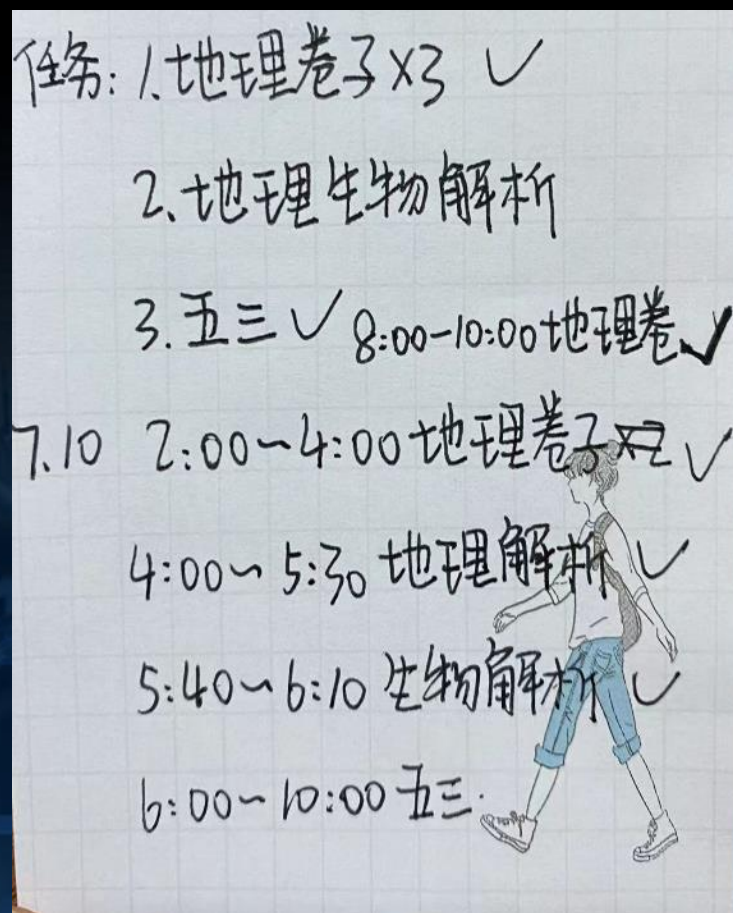 任务: 1.地理卷子×3 ✓
2.地理生物解析
3.五三✓ 8:00-10:00地理卷✓
7.10 2:00~4:00地理卷子×2 ✓
4:00~5:30 地理解析 ✓
5:40~6:10 生物解析 ✓
6:00~10:00 五三.